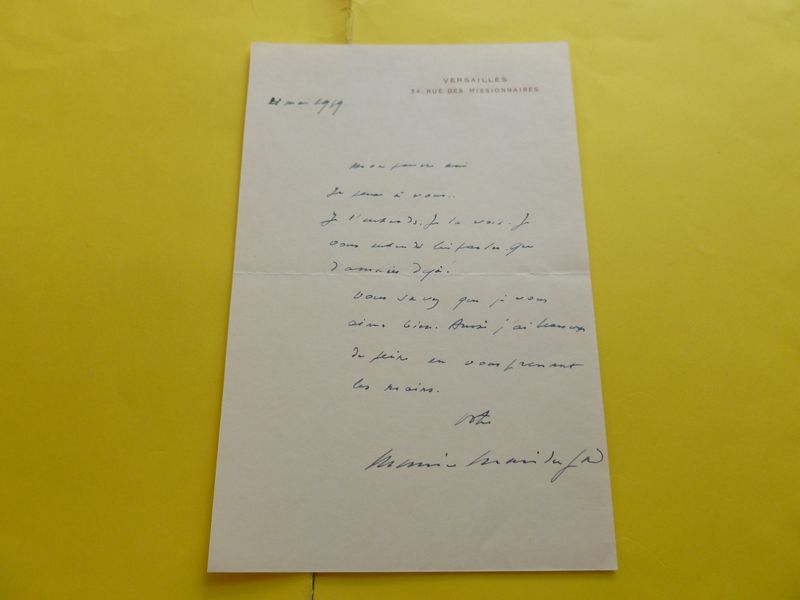 VERSAILLES
34, RUE DES MISSIONNAIRES
21 mai 1969
Mon pauvre ami
Je pense à vous..
Je l'entends. Je la vois. Je
vous entends lui parler. Que
d'années déjà!
Vous savez que je vous
aime bien. Aussi j'ai beaucoup
de peine en vous prenant
les mains.
Votre
Maurice Martin du Gard